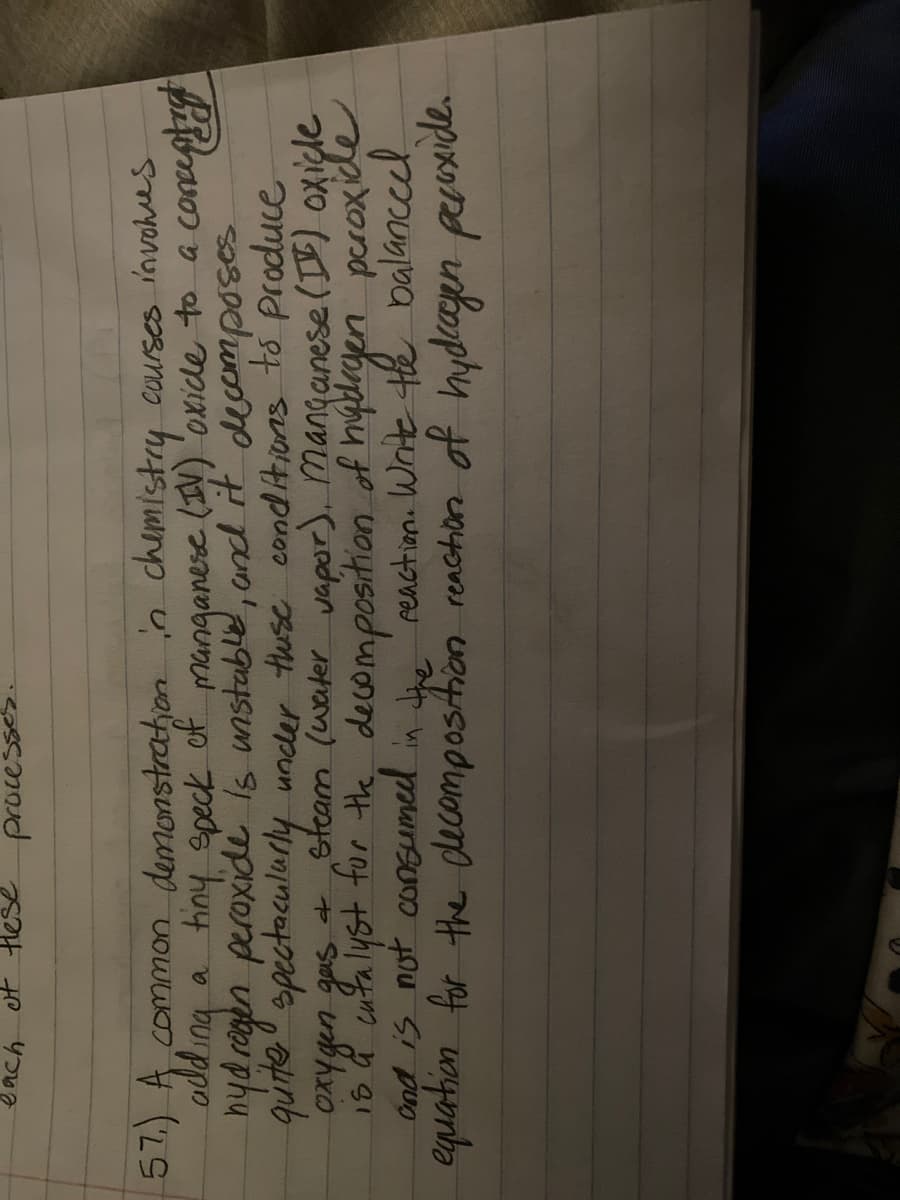 each of these processes.
57.) A common demonstration in chemistry courses involves
adding a tiny speck of manganese (IV) oxide to a concentrated
hydrogen peroxide is unstable, and it decomposes
quite spectacularly under these conditions to produce
oxygen gas + steam (water vapor). Manganese (IV) oxide
is a catalyst for the decomposition of hydrogen peroxide
and is not consumed in the reaction. Write the balanced
equation for the decomposition reaction of hydrogen peroxide.